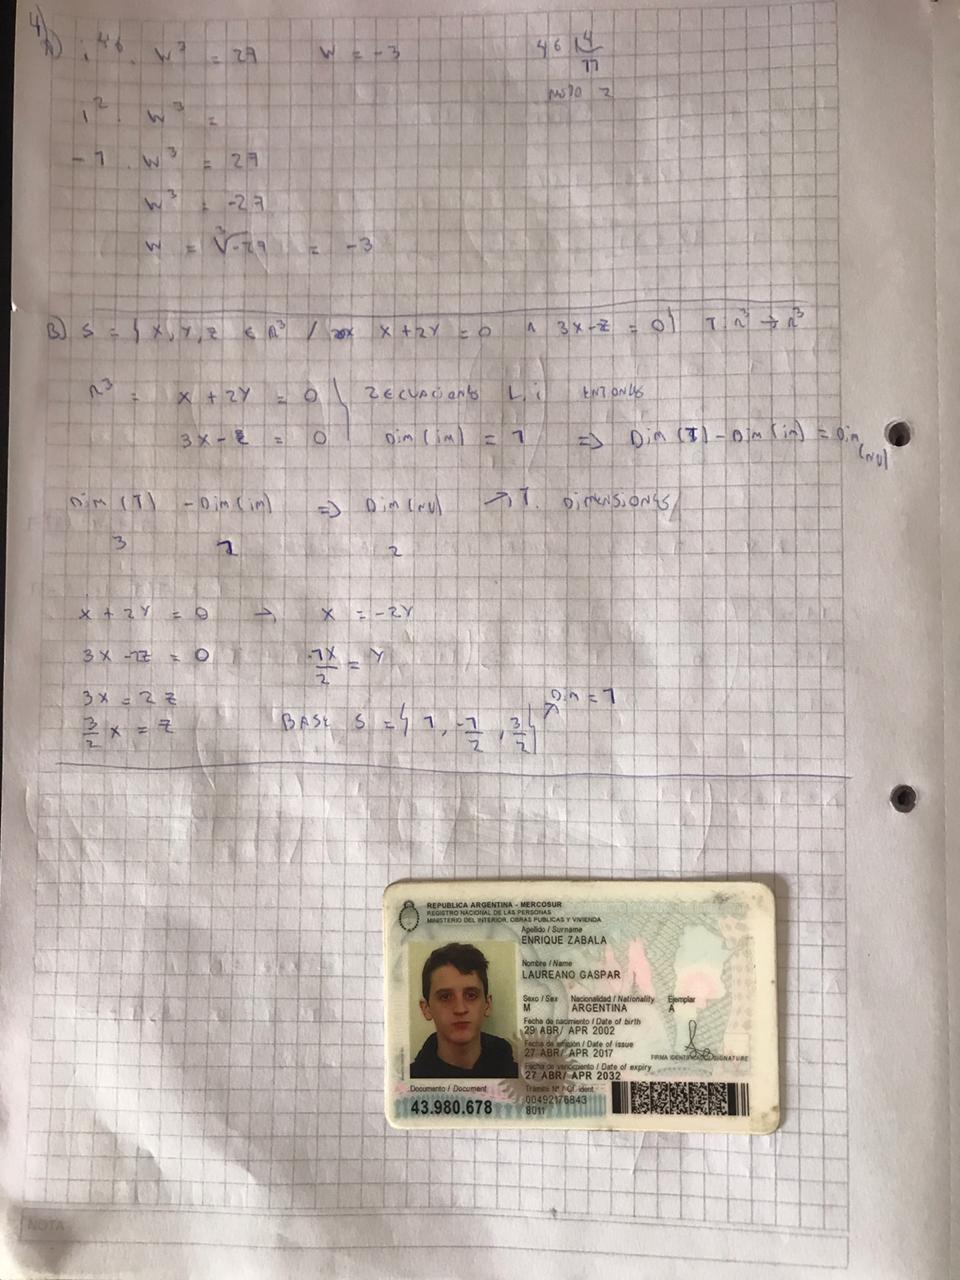 4)
A) i^46 . W^3 = 27 W = -3 46 |4
11
resto 2
i^2 . W^3 =
-1 . W^3 = 27
W^3 = -27
W = ∛-27 = -3
B) S = { X, Y, Z ∈ R^3 / X + 2Y = 0 ∧ 3X - Z = 0} T: R^3 → R^3
R^3 = X + 2Y = 0 2 ECUACIONES L.i ENTONCES
3X - Z = 0 Dim (im) = 1 => Dim (T) - Dim (im) = Dim (NU)
Dim (T) - Dim (im) => Dim (NU) → T. DIMENSIONES
3 1 2
X + 2Y = 0 → X = -2Y
3X - 2Z = 0 -1X/2 = Y
3X = 2Z
3/2 X = Z BASE S = { 1, -1/2, 3/2 } Dim = 1
REPUBLICA ARGENTINA - MERCOSUR
REGISTRO NACIONAL DE LAS PERSONAS
MINISTERIO DEL INTERIOR, OBRAS PUBLICAS Y VIVIENDA
Apellido / Surname
ENRIQUE ZABALA
Nombre / Name
LAUREANO GASPAR
Sexo / Sex Nacionalidad / Nationality Ejemplar
M ARGENTINA A
Fecha de nacimiento / Date of birth
29 ABR/ APR 2002
Fecha de emisión / Date of issue
27 ABR/ APR 2017
FIRMA IDENTIFICADO / SIGNATURE
Fecha de vencimiento / Date of expiry
27 ABR/ APR 2032
Documento / Document Trámite Nº / Of. ident.
43.980.678 00492176843
8011
NOTA